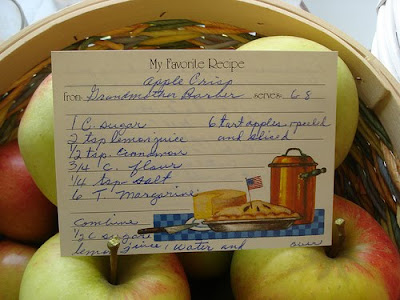 My Favorite Recipe
Apple Crisp
From: Grandmother Barber serves: 6-8
1 C. sugar
6 tart apples, peeled and sliced
2 tsp lemon juice
1/2 tsp. cinnamon
3/4 c. flour
1/4 tsp salt
6 T. Margarine
Combine
1/2 C sugar
lemon juice, water and
over